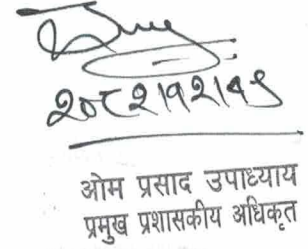 २०८२।१२।१९
ओम प्रसाद उपाध्याय
प्रमुख प्रशासकीय अधिकृत